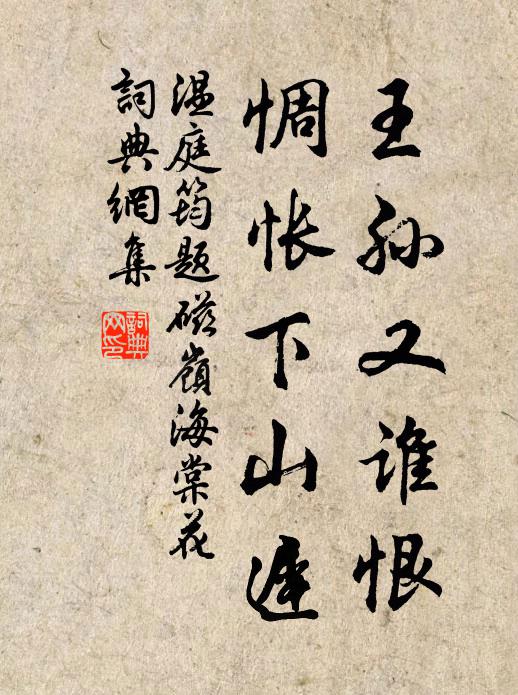 王孙又谁恨
惆怅下山遲
温庭筠題磁嶺海棠花
詞典網集
詞典网印